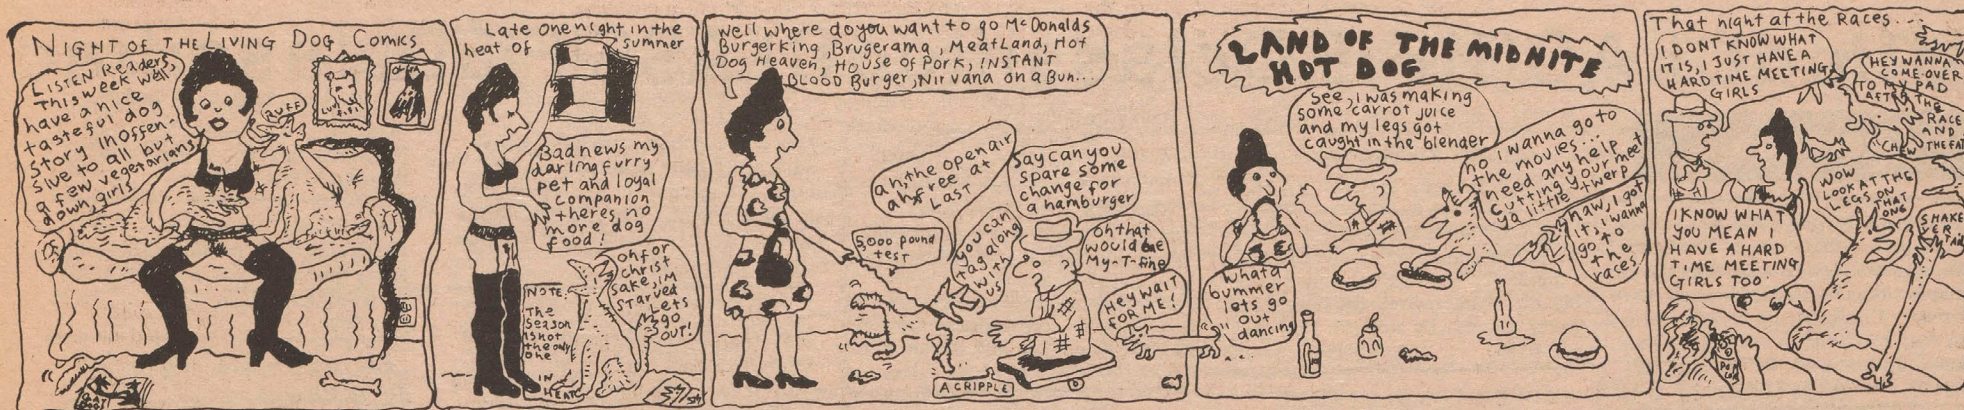 NIGHT OF THE LIVING DOG COMICS
LISTEN Readers,
this week we'll
have a nice
tasteful dog
story inoffen-
sive to all but
a few vegetarians
down, girls
RUFF
Late one night in the
heat of summer
Bad news my
darling furry
pet and loyal
companion
theres, no
more dog
food!
oh for
christ
sake, iM
starved
Lets
go
OUT!
NOTE:
The
Season
is not
the only
one
IN
HEAT
Well where do you want to go McDonalds
Burgerking, Brugerama, MeatLand, Hot
Dog Heaven, House of Pork, INSTANT
BLOOD Burger, Nirvana on a Bun...
ah, the open air
ah free at
LAST
5,000 pound
test
you can
tag along
with
us
Say can you
spare some
change for
a hamburger
oh that
would be
My-T-fine
Hey wait
for ME!
A CRIPPLE
LAND OF THE MIDNITE
HOT DOG
See, i was making
some carrot juice
and my legs got
caught in the blender
no i wanna go to
the movies...
need any help
cutting your meet
ya little twerp
naw, I got
it, i wanna
go to
the
races
what a
bummer
lets go
out
dancing
That night at the Races...
I DONT KNOW WHAT
IT IS, I JUST HAVE A
HARD TIME MEETING
GIRLS
HEY WANNA
COME OVER
TO MY PAD
AFTER THE
RACE
AND
CHEW THE FAT
I KNOW WHAT
YOU MEAN I
HAVE A HARD
TIME MEETING
GIRLS TOO
WOW
LOOK AT THE
LEGS ON
THAT
ONE
SHAKE